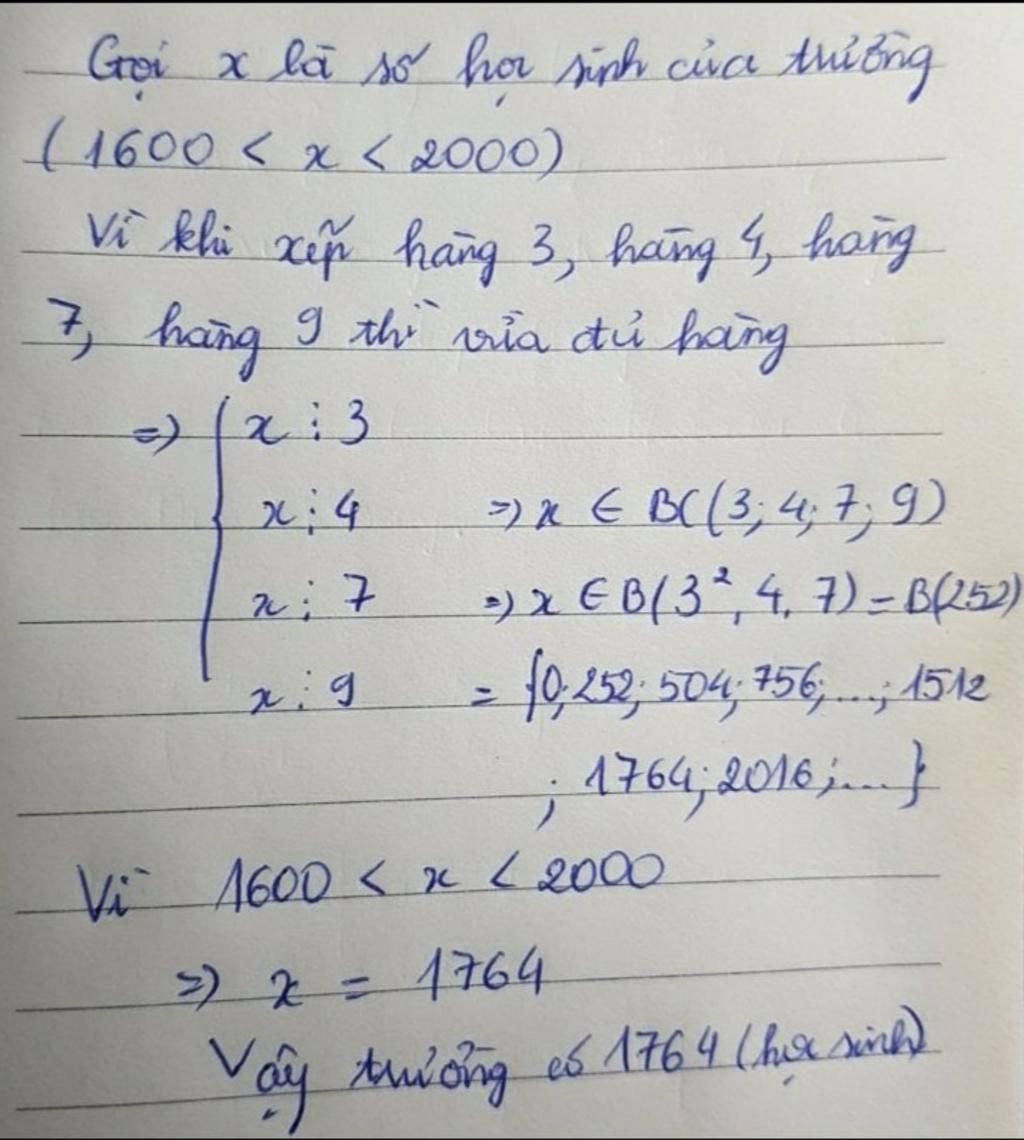 Gọi x là số học sinh của trường
(1600 < x < 2000)
Vì khi xếp hàng 3, hàng 4, hàng
7, hàng 9 thì vừa đủ hàng
=> { x ⋮ 3
x ⋮ 4 => x ∈ BC(3; 4; 7; 9)
x ⋮ 7 => x ∈ B(3², 4. 7) = B(252)
x ⋮ 9 = {0; 252; 504; 756; ...; 1512
; 1764; 2016; ... }
Vì 1600 < x < 2000
=> x = 1764
Vậy trường có 1764 (học sinh)